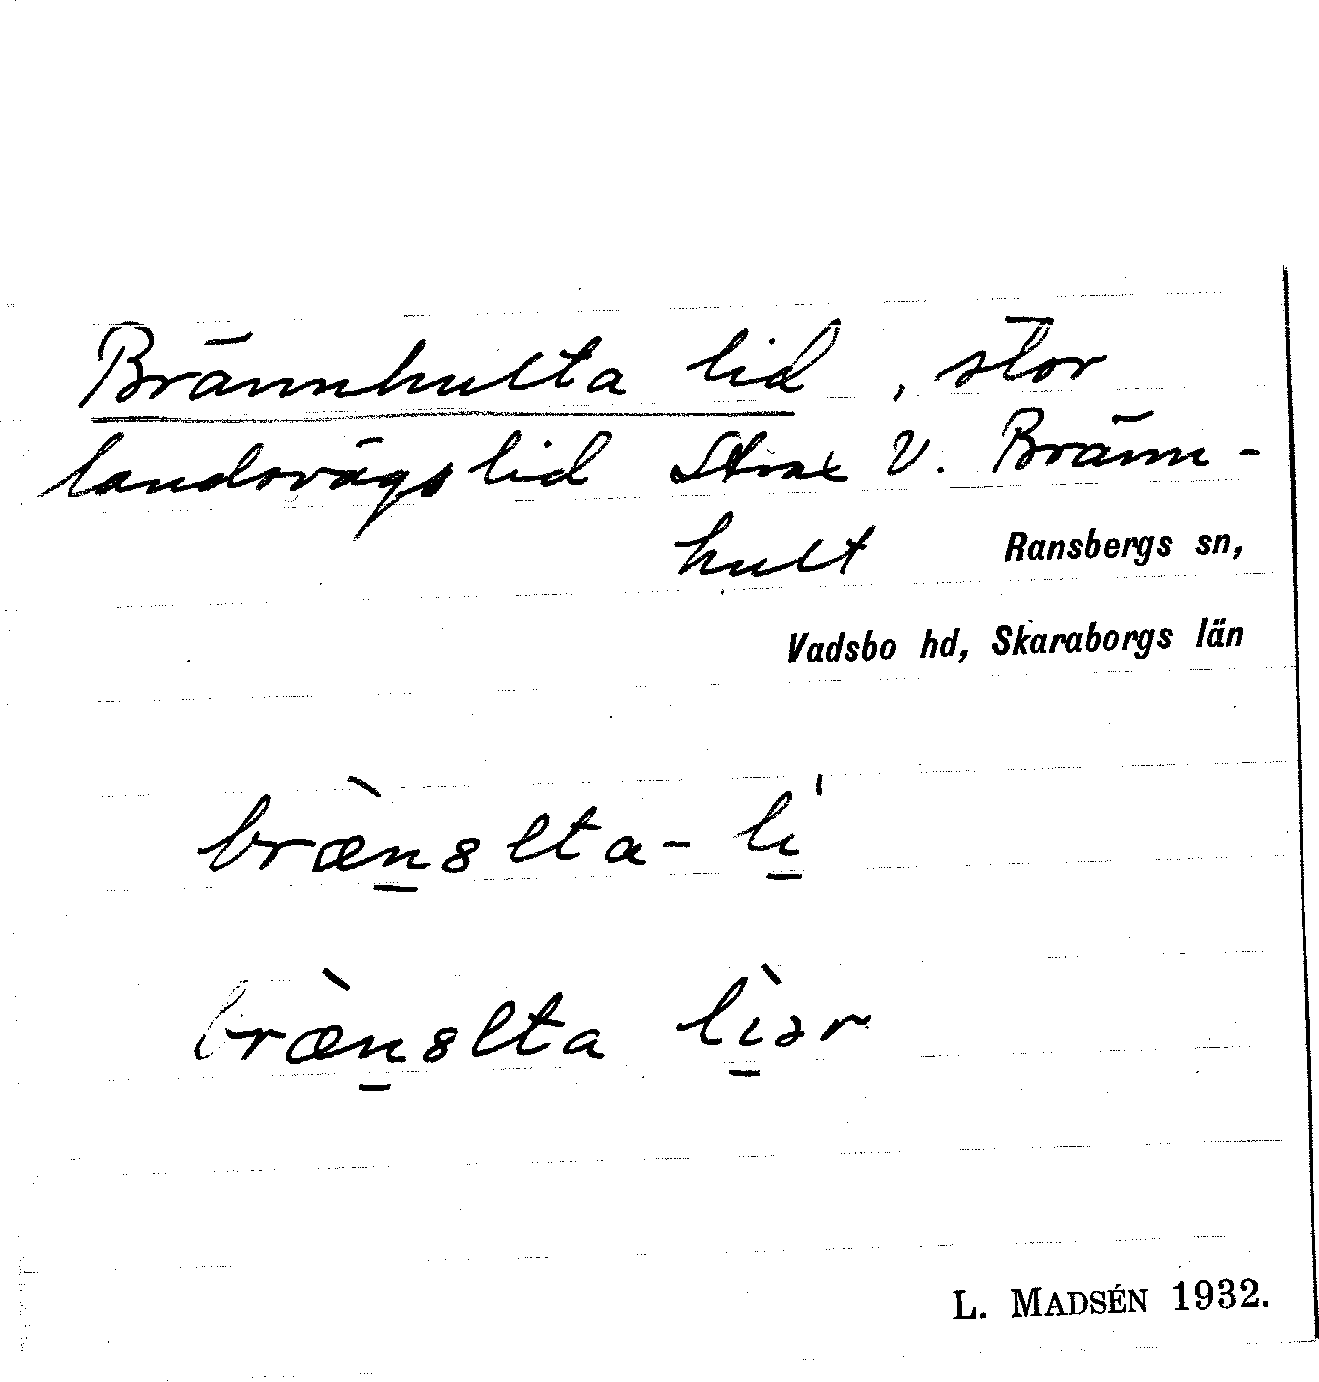 Brännhulta lid, stor
landsvägslid strax V. Bränn-
hult
Ransbergs sn,
Vadsbo hd, Skaraborgs län
bræ̀n̲8lta-li̲'
bræ̀n̲8lta lì̲ər
L. MADSÉN 1932.